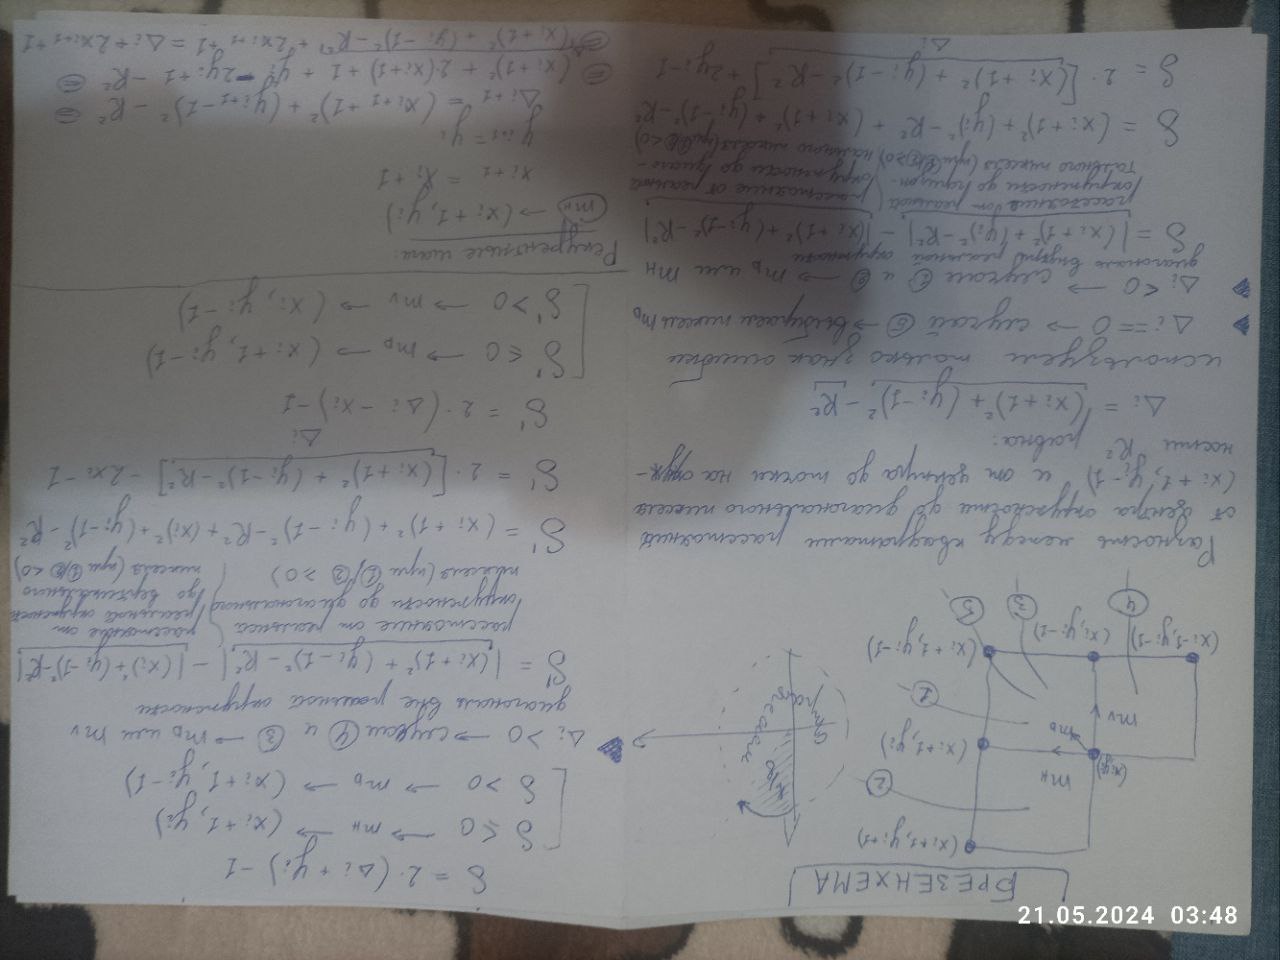 БРЕЗЕНХЕМА
(xi+1, yi+1)
(xi, yi)
mн
(xi+1, yi)
mD
mv
(xi-1, yi-1)
(xi, yi-1)
(xi+1, yi-1)
1
2
3
4
5
Строится
Разность между квадратами расстояний
от центра окружности до диагонального пикселя
(xi+1, yi-1) и от центра до точки на окруж-
ности R² равна:
Δi = (xi+1)² + (yi-1)² - R²
используем только знак ошибки
Δi == 0 → случай ⑤ → выбираем пиксель mD
Δi < 0 → случаи ① и ② → mD или mн
диагональ внутри реальной окружности
δ = |(xi+1)² + (yi)² - R²| - |(xi+1)² + (yi-1)² - R²|
расстояние от реальной
окружности до горизон-
тального пикселя (при ①② >0)
расстояние от реальной
окружности до диаго-
нального пикселя (при ①② <0)
δ = (xi+1)² + (yi)² - R² + (xi+1)² + (yi-1)² - R²
δ = 2·[(xi+1)² + (yi-1)² - R²] + 2yi - 1
Δi
δ = 2·(Δi + yi) - 1
δ ≤ 0 → mн → (xi+1, yi)
δ > 0 → mD → (xi+1, yi-1)
Δi > 0 → случаи ④ и ③ → mD или mv
диагональ вне реальной окружности
δ' = |(xi+1)² + (yi-1)² - R²| - |(xi)² + (yi-1)² - R²|
расстояние от реальной
окружности до диагонального
пикселя (при ①② >0)
расстояние от
реальной окружности
до вертикального
пикселя (при ①② <0)
δ' = (xi+1)² + (yi-1)² - R² + (xi)² + (yi-1)² - R²
δ' = 2·[(xi+1)² + (yi-1)² - R²] - 2xi - 1
Δi
δ' = 2·(Δi - xi) - 1
δ' ≤ 0 → mD → (xi+1, yi-1)
δ' > 0 → mv → (xi, yi-1)
Рекурентные шаги:
mн → (xi+1, yi)
xi+1 = xi+1
yi+1 = yi
Δi+1 = (xi+1+1)² + (yi+1-1)² - R² =
= (xi+1)² + 2(xi+1) + 1 + yi² - 2yi + 1 - R² =
= (xi+1)² + (yi-1)² - R² + 2xi+1 + 1 = Δi + 2xi+1 + 1
Δi
21.05.2024 03:48